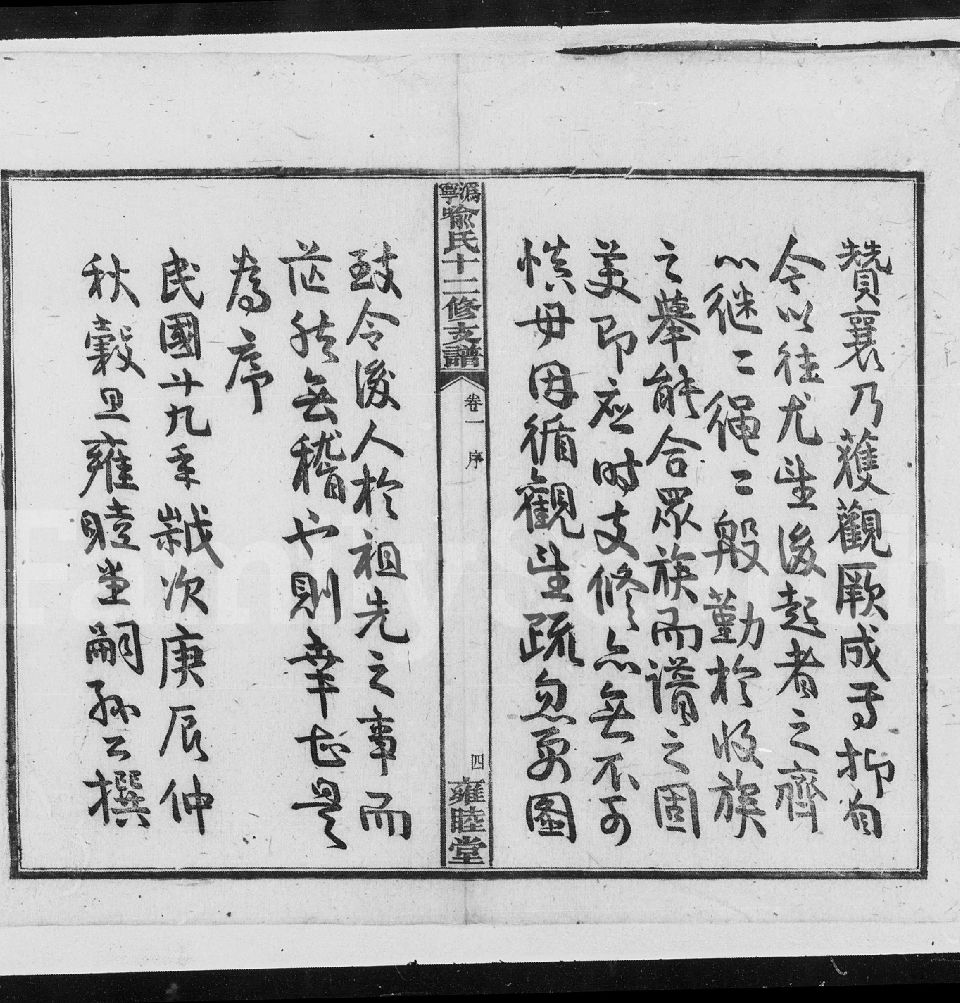 贊襄乃獲觀厥成予抑自
今以往尤望後起者之齊
以繼〻繩〻般勤於收族
之舉能合眾族而譜之固
美即應時支修亦無不可
慎毋因循觀望疏忽弗圖
溈寧喻氏十二修支譜
卷一 序
四
雍睦堂
致令後人於祖先之事而
茫然無稽也則幸甚是
為序
民國廿九年歲次庚辰仲
秋穀旦雍睦堂嗣孫公撰